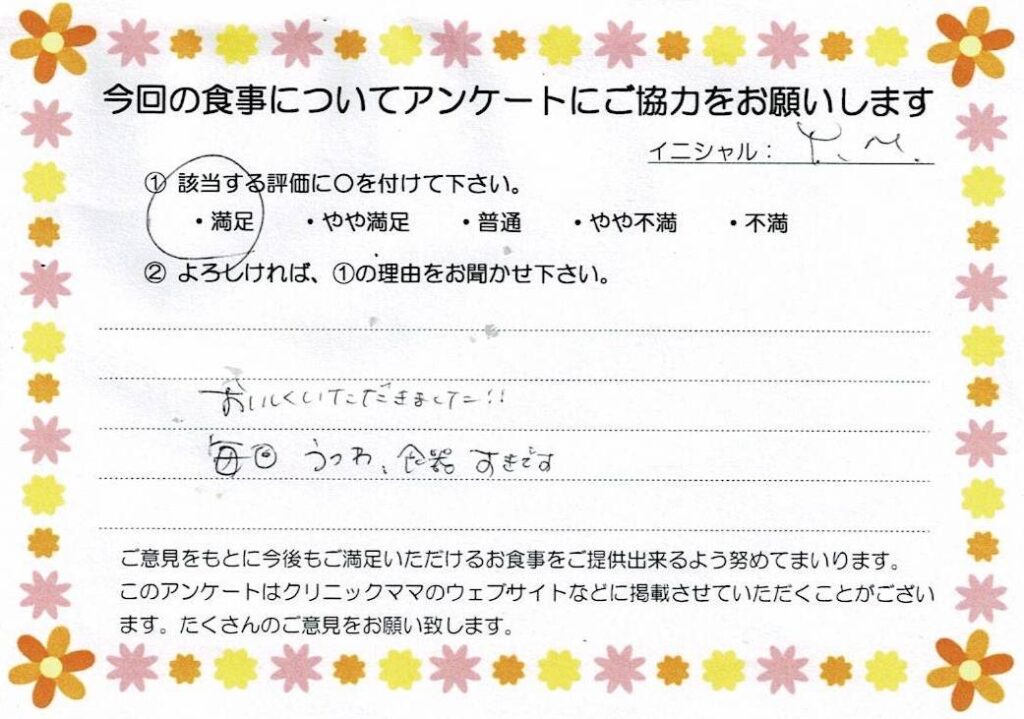 今回の食事についてアンケートにご協力をお願いします
イニシャル： Y. M.
① 該当する評価に〇を付けて下さい。
・満足 ・やや満足 ・普通 ・やや不満 ・不満
② よろしければ、①の理由をお聞かせ下さい。
おいしくいただきました!!
毎回 うつわ、食器 すきです
ご意見をもとに今後もご満足いただけるお食事をご提供出来るよう努めてまいります。
このアンケートはクリニックママのウェブサイトなどに掲載させていただくことがござい
ます。たくさんのご意見をお願い致します。